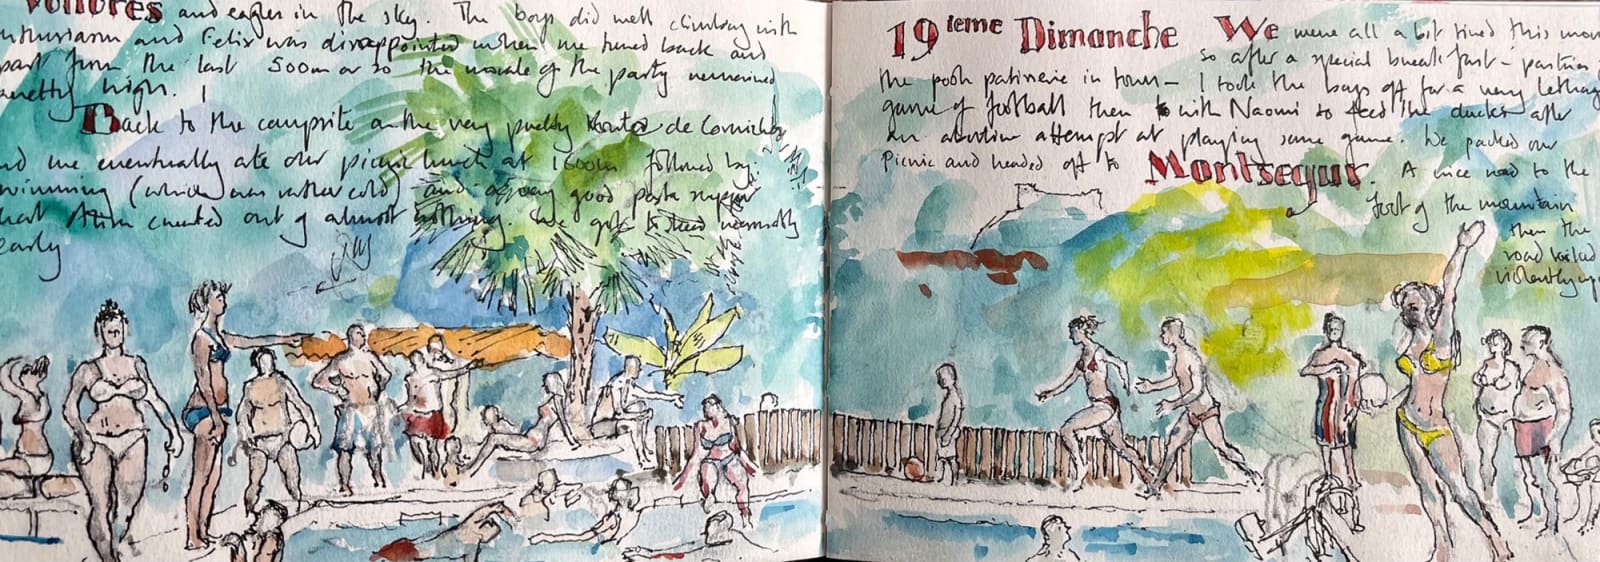 Vultures and eagles in the sky. The boys did well climbing with
enthusiasm and Felix was disappointed when we turned back and
apart from the last 500m or so the morale of the party remained
pretty high. I
Back to the campsite on the very pretty Route de Corniches
and we eventually ate our picnic lunch at 1600hrs followed by
swimming (which was rather cold) and a very good pasta supper
that created out of almost nothing. We got to bed normally
early
19 ieme Dimanche We were all a bit tired this morn
so after a special breakfast – pastries
the posh patisserie in town – I took the boys off for a very letharg
game of football then with Naomi to feed the ducks after
an abortive attempt at playing some game. We packed our
picnic and headed off to Montsegur. A nice road to the
foot of the mountain
then the
road
violently up